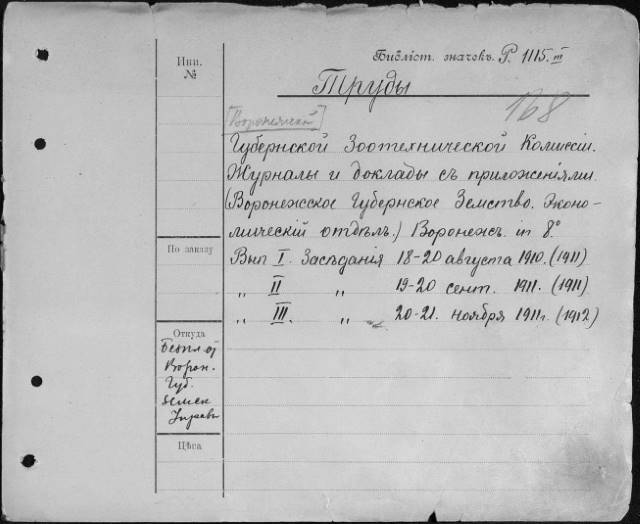 Инв. №
Библіот. значекъ. Р. 1115.III
Труды
168
[Воронежской]
Губернской Зоотехнической Комиссіи.
Журналы и доклады съ приложеніями.
(Воронежское Губернское Земство. Эконо-
мическій отдѣлъ.) Воронежъ. in 8º
По заказу
Вып I. Засѣданія 18-20 августа 1910. (1911)
„ II „ 19-20 сент. 1911. (1911)
„ III. „ 20-21. ноября 1911г. (1912)
Откуда
Безпл от
Ворон.
Губ.
Земск
Управы
Цѣна